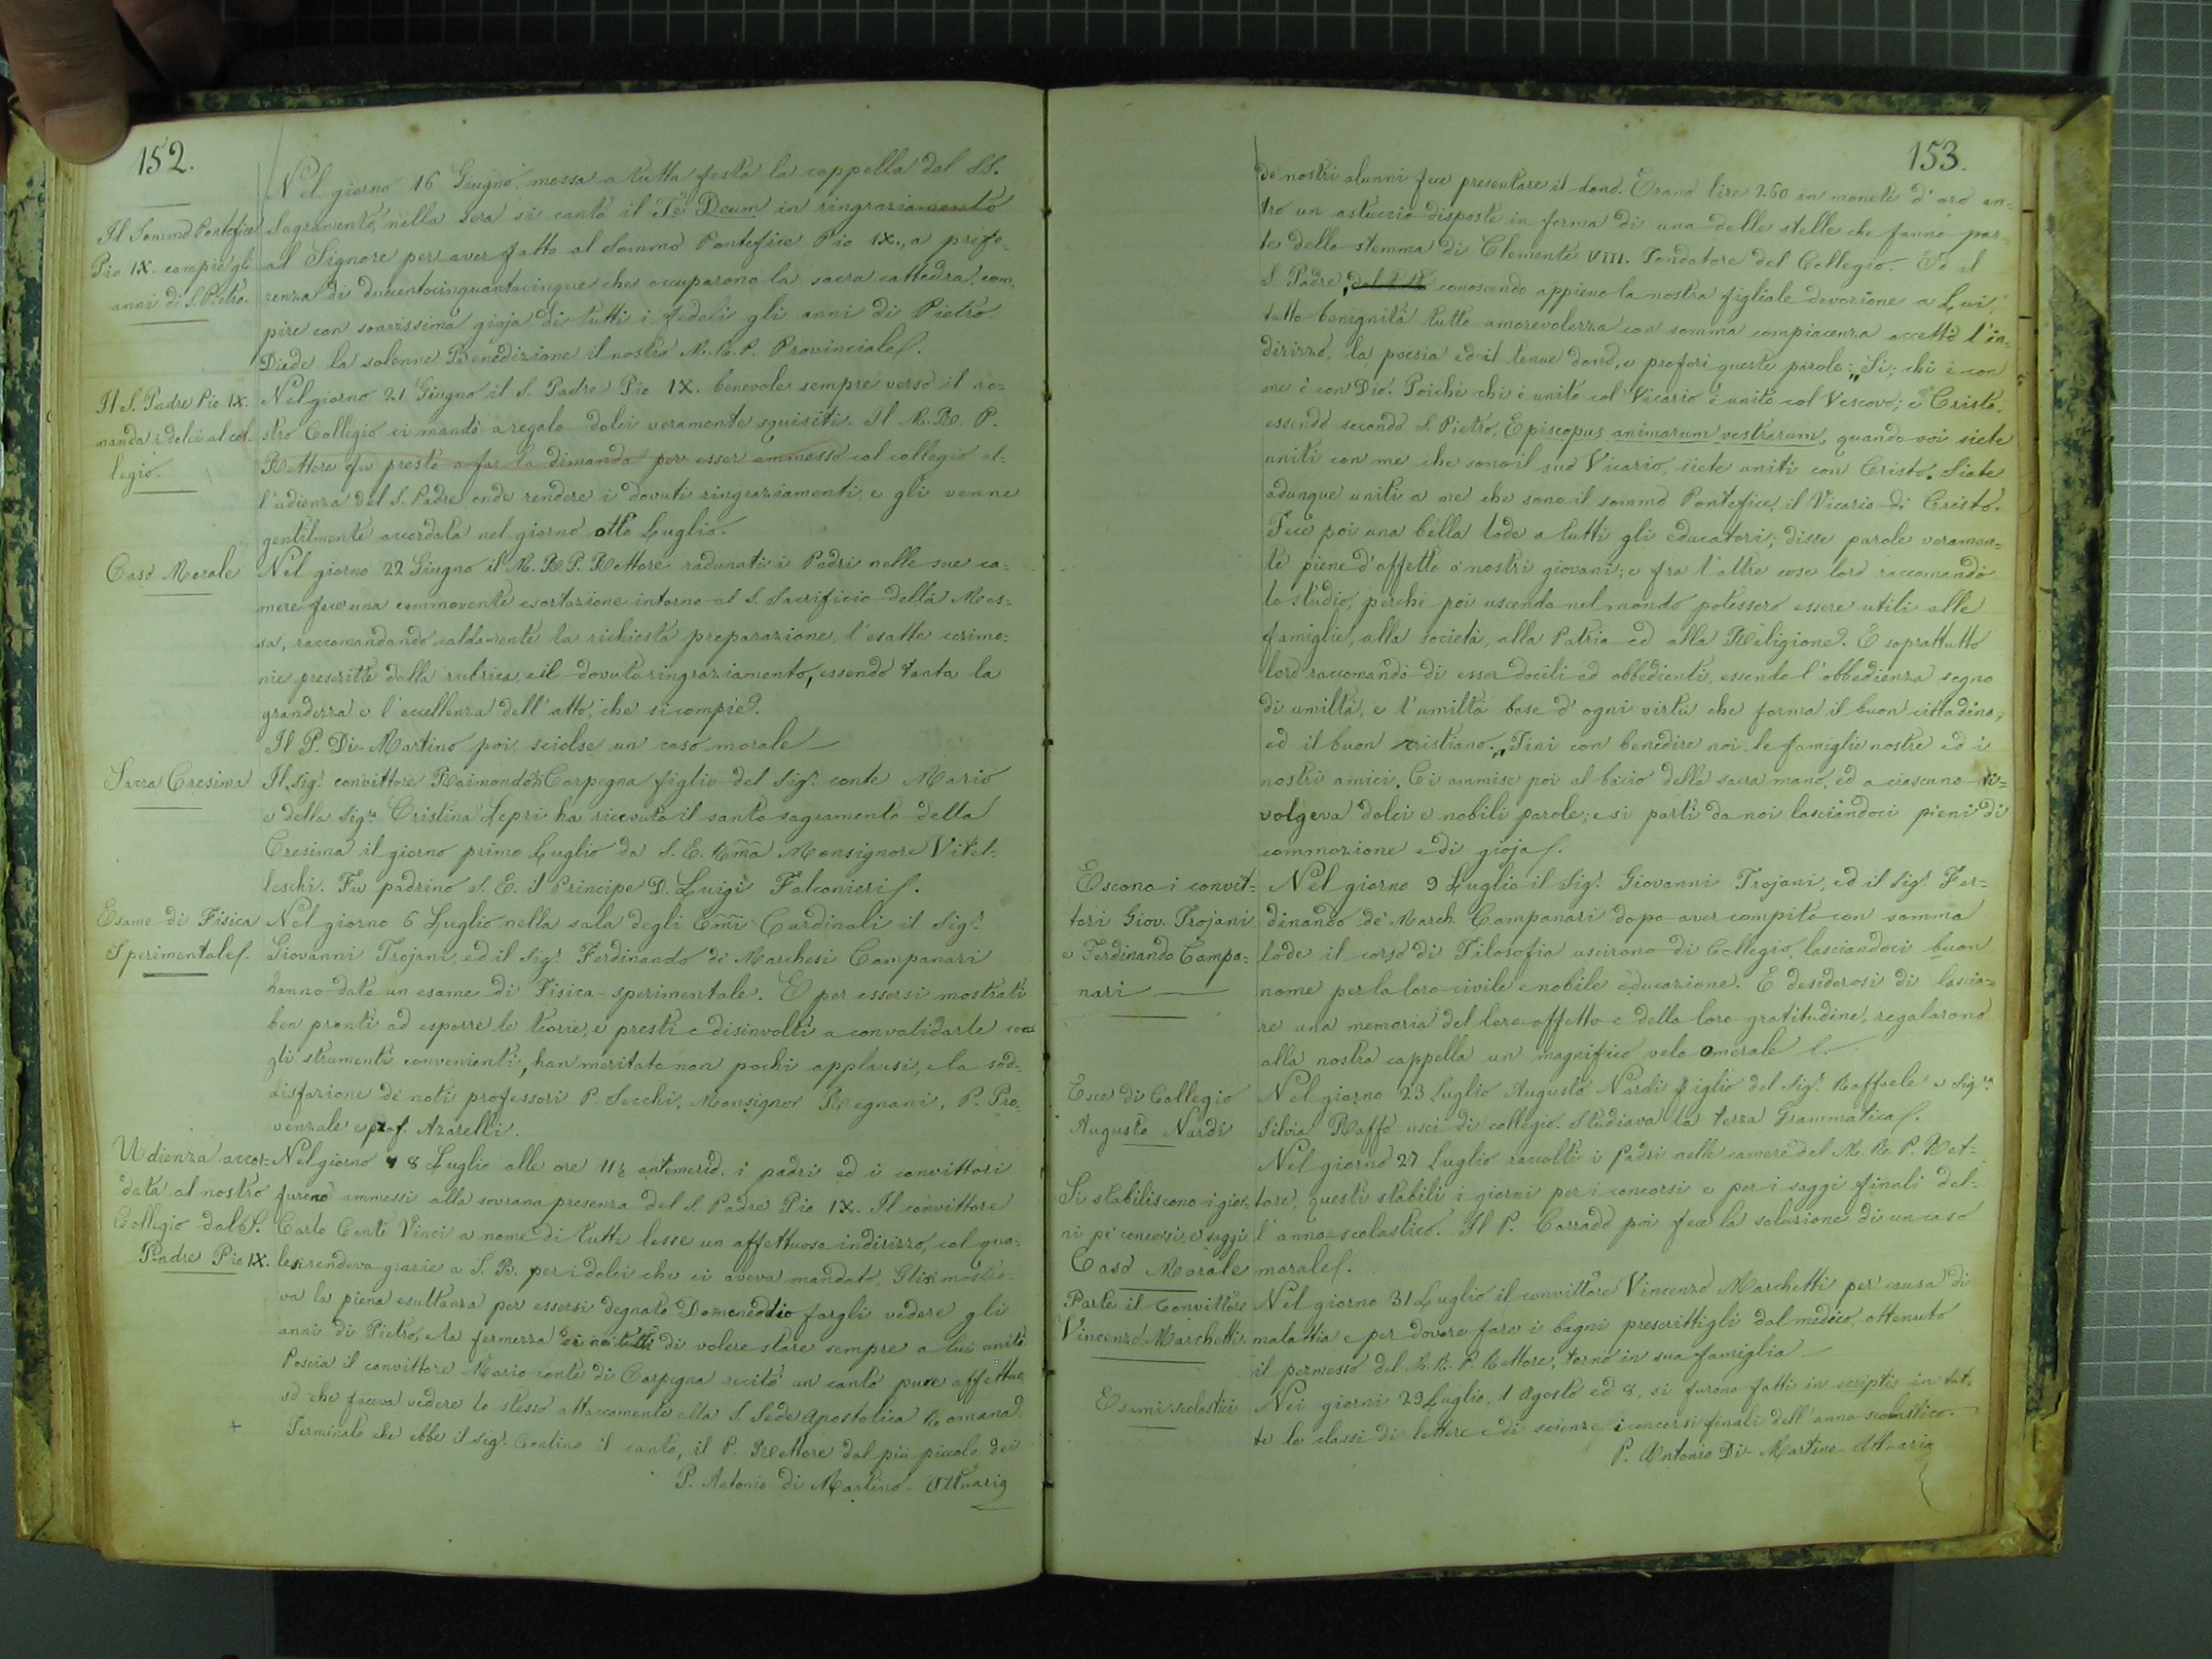 152.
Nel giorno 16 Giugno, messa a tutta festa la cappella del SS.
Il Sommo Pontefice
Pio IX. compie gli
anni di S. Pietro.
Sagramento, nella sera si cantò il Te Deum in ringraziamento
al Signore per aver fatto al Sommo Pontefice Pio IX., a prefe-
renza di duecentocinquantacinque che occuparono la sacra cattedra, com-
pire con soavissima gioja di tutti i fedeli gli anni di Pietro
Diede la solenne Benedizione il nostro M. R. P. Provinciale.
Il S. Padre Pio IX.
manda i dolci al col-
legio.
Nel giorno 21 Giugno il S. Padre Pio IX. benevole sempre verso il no=
stro Collegio ci mandò a regalo dolci veramente squisiti. Il M. R. P.
Rettore fu presto a far la dimanda per esser ammesso col collegio al-
l'udienza del S. Padre onde rendere i dovuti ringraziamenti, e gli venne
gentilmente accordata nel giorno otto Luglio.
Caso Morale
Nel giorno 22 Giugno il M. R. P. Rettore radunati i Padri nelle sue ca=
mere fece una commovente esortazione intorno al S. Sacrificio della Mes=
sa, raccomandando caldamente la richiesta preparazione, l'esatte cerimo=
nie prescritte dalla rubrica, e il dovuto ringraziamento, essendo tanta la
grandezza e l'eccellenza dell'atto, che si compie.
Il P. Di-Martino poi sciolse un caso morale
Sacra Cresima
Il Sig.r convittore Raimondo di Carpegna figlio del Sig.r conte Mario
e della Sig.ra Cristina Lepri ha ricevuto il santo sagramento della
Cresima il giorno primo Luglio da S. E. Rma Monsignore Vitel-
leschi. Fu padrino S. E. il Principe D. Luigi Falconieri.
Esame di Fisica
Sperimentale.
Nel giorno 6 Luglio nella sala degli Emi Cardinali il Sig.r
Giovanni Trojani, ed il Sig.r Ferdinando de' Marchesi Campanari
hanno dato un esame di Fisica-sperimentale. E per essersi mostrati
ben pronti ad esporre le teorie, e presti e disinvolti a convalidarle con
gli strumenti convenienti, han meritato non pochi applausi, e la sod-
disfazione de' noti professori P. Secchi, Monsignor Regnani, P. Pro-
venzale e prof. Azarelli.
Udienza accor-
data al nostro
Collegio dal S.
Padre Pio IX.
Nel giorno 8 Luglio alle ore 11½ antemerid. i padri ed i convittori
furono ammessi alla sovrana presenza del S. Padre Pio IX. Il convittore
Carlo Conte Vinci a nome di tutti lesse un affettuoso indirizzo, col qua-
le si rendeva grazie a S. B. per i dolci che ci aveva mandato, Gli si mostra-
va la piena esultanza per essersi degnato Domeneddio fargli vedere gli
anni di Pietro, e la fermezza di noi tutti di volere stare sempre a lui uniti.
Poscia il convittore Mario conte di Carpegna recitò un canto pure affettuo
so che faceva vedere lo stesso attaccamento alla S. Sede Apostolica Romana.
+ Terminato che ebbe il Sig.r Contino il canto, il P. Rettore dal più piccolo dei
P. Antonio di Martino - Attuario
153.
de' nostri alunni fece presentare il dono. Erano lire 260 in monete d'oro en-
tro un astuccio disposte in forma di una delle stelle che fanno par-
te dello stemma di Clemente VIII. Fondatore del Collegio. Ed il
S. Padre, conoscendo appieno la nostra figliale devozione a Lui,
tutto benignità tutto amorevolezza con somma compiacenza accettò l'in-
dirizzo, la poesia ed il tenue dono, e proferì queste parole: „Sì; chi è con
me è con Dio. Poichè chi è unito col Vicario è unito col Vescovo; e Cristo,
essendo secondo S. Pietro, Episcopus animarum vestrarum, quando voi siete
uniti con me che sono il suo Vicario, siete uniti con Cristo. Siate
adunque uniti a me che sono il sommo Pontefice, il Vicario di Cristo.
Fece poi una bella lode a tutti gli educatori; disse parole veramen=
te piene d'affetto a' nostri giovani; e fra l'altre cose loro raccomandò
lo studio, perchè poi uscendo nel mondo potessero essere utili alle
famiglie, alla società, alla Patria ed alla Religione. E soprattutto
loro raccomandò di esser docili ed obbedienti, essendo l'obbedienza segno
di umiltà, e l'umiltà base d'ogni virtù che forma il buon cittadino,
ed il buon cristiano.„ Finì con benedire noi le famiglie nostre ed i
nostri amici. Ci ammise poi al bacio della sacra mano, ed a ciascuno ri=
volgeva dolci e nobili parole; e si partì da noi lasciandoci pieni di
commozione e di gioja.
Escono i convit=
tori Giov. Trojani
e Ferdinando Campa=
nari
Nel giorno 9 Luglio il Sig.r Giovanni Trojani, ed il Sig.r Fer=
dinando de' March. Campanari dopo aver compito con somma
lode il corso di Filosofia uscirono di Collegio, lasciandoci buon
nome per la loro civile e nobile educazione. E desiderosi di lascia=
re una memoria del loro affetto e della loro gratitudine, regalarono
alla nostra cappella un magnifico velo omerale
Esce di Collegio
Augusto Nardi
Nel giorno 23 Luglio Augusto Nardi figlio del Sig.r Raffaele e Sig.ra
Silvia Raffo uscì di collegio. Studiava la terza Grammatica.
Si stabiliscono i gior-
ni pe' concorsi e saggi
Caso Morale
Nel giorno 27 Luglio raccolti i Padri nelle camere del M. R. P. Ret-
tore, questi stabilì i giorni per i concorsi e per i saggi finali del-
l'anno scolastico. Il P. Corrado poi fece la soluzione di un caso
morale.
Parte il Convittore
Vincenzo Marchetti.
Nel giorno 31 Luglio il convittore Vincenzo Marchetti per causa di
malattia e per dovere fare i bagni prescrittigli dal medico, ottenuto
il permesso del M. R. P. Rettore, tornò in sua famiglia
Esami scolastici
Nei giorni 29 Luglio, 1 Agosto ed 8, si furono fatti in scriptis in tut-
te le classi di lettere e di scienze i concorsi finali dell'anno scolastico.
P. Antonio Di-Martino Attuario